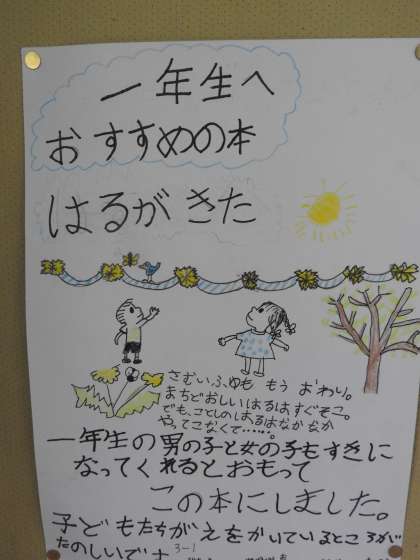 一年生へ
おすすめの本
はるがきた
さむいふゆも もう おわり。
まちどおしいはるはすぐそこ。
でも、ことしのはるはなかなか
やってこなくて……。
一年生の男の子と女の子もすきに
なってくれるとおもって
この本にしました。
子どもたちがえをかいているところがい
たのしいです
3-1